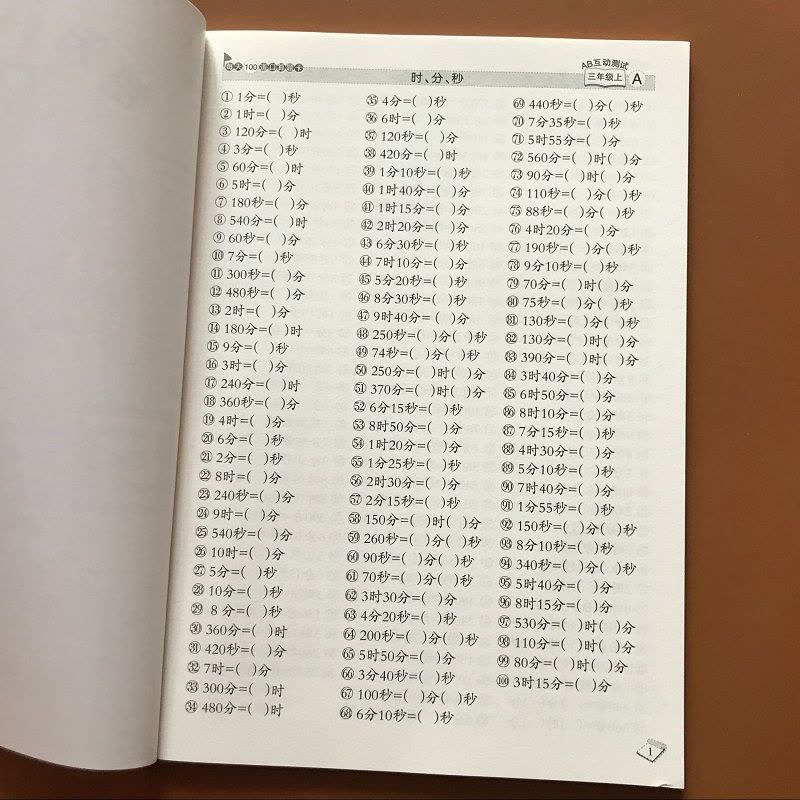 每天100道口算题卡
AB互动测试
三年级上 A
时、分、秒
① 1分=( )秒
② 1时=( )分
③ 120分=( )时
④ 3分=( )秒
⑤ 60分=( )时
⑥ 5时=( )分
⑦ 180秒=( )分
⑧ 540分=( )时
⑨ 60秒=( )分
⑩ 7分=( )秒
⑪ 300秒=( )分
⑫ 480秒=( )分
⑬ 2时=( )分
⑭ 180分=( )时
⑮ 9分=( )秒
⑯ 3时=( )分
⑰ 240分=( )时
⑱ 360秒=( )分
⑲ 4时=( )分
⑳ 6分=( )秒
㉑ 2分=( )秒
㉒ 8时=( )分
㉓ 240秒=( )分
㉔ 9时=( )分
㉕ 540秒=( )分
㉖ 10时=( )分
㉗ 5分=( )秒
㉘ 10分=( )秒
㉙ 8分=( )秒
㉚ 360分=( )时
㉛ 420秒=( )分
㉜ 7时=( )分
㉝ 300分=( )时
㉞ 480分=( )时
㉟ 4分=( )秒
㊱ 6时=( )分
㊲ 120秒=( )分
㊳ 420分=( )时
㊴ 1分10秒=( )秒
㊵ 1时40分=( )分
㊶ 1时15分=( )分
㊷ 2时20分=( )分
㊸ 6分30秒=( )秒
㊹ 7时10分=( )分
㊺ 5分20秒=( )秒
㊻ 8分30秒=( )秒
㊼ 9时40分=( )分
㊽ 250秒=( )分( )秒
㊾ 74秒=( )分( )秒
㊿ 250分=( )时( )分
51 370分=( )时( )分
52 6分15秒=( )秒
53 8时50分=( )分
54 1时20分=( )分
55 1分25秒=( )秒
56 2时30分=( )分
57 2分15秒=( )秒
58 150分=( )时( )分
59 260秒=( )分( )秒
60 90秒=( )分( )秒
61 70秒=( )分( )秒
62 3时30分=( )分
63 4分20秒=( )秒
64 200秒=( )分( )秒
65 5时50分=( )分
66 3分40秒=( )秒
67 100秒=( )分( )秒
68 6分10秒=( )秒
69 440秒=( )分( )秒
70 7分35秒=( )秒
71 5时55分=( )分
72 560分=( )时( )分
73 90分=( )时( )分
74 110秒=( )分( )秒
75 88秒=( )分( )秒
76 4时20分=( )分
77 190秒=( )分( )秒
78 9分10秒=( )秒
79 70分=( )时( )分
80 75秒=( )分( )秒
81 130秒=( )分( )秒
82 130分=( )时( )分
83 390分=( )时( )分
84 3时40分=( )分
85 6时50分=( )分
86 8时10分=( )分
87 7分15秒=( )秒
88 4时30分=( )分
89 5分10秒=( )秒
90 7时40分=( )分
91 1分55秒=( )秒
92 150秒=( )分( )秒
93 8分10秒=( )秒
94 340秒=( )分( )秒
95 5时40分=( )分
96 8时15分=( )分
97 530分=( )时( )分
98 110分=( )时( )分
99 80分=( )时( )分
100 3时15分=( )分
1